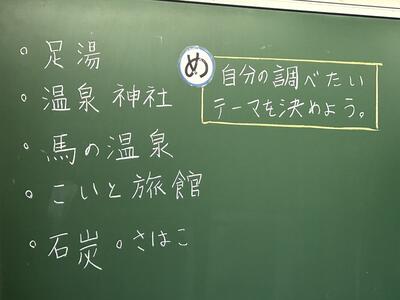 め
自分の調べたい
テーマを決めよう。
。足湯
。温泉 神社
。馬の温泉
。こいと旅館
。石炭 。さはこ